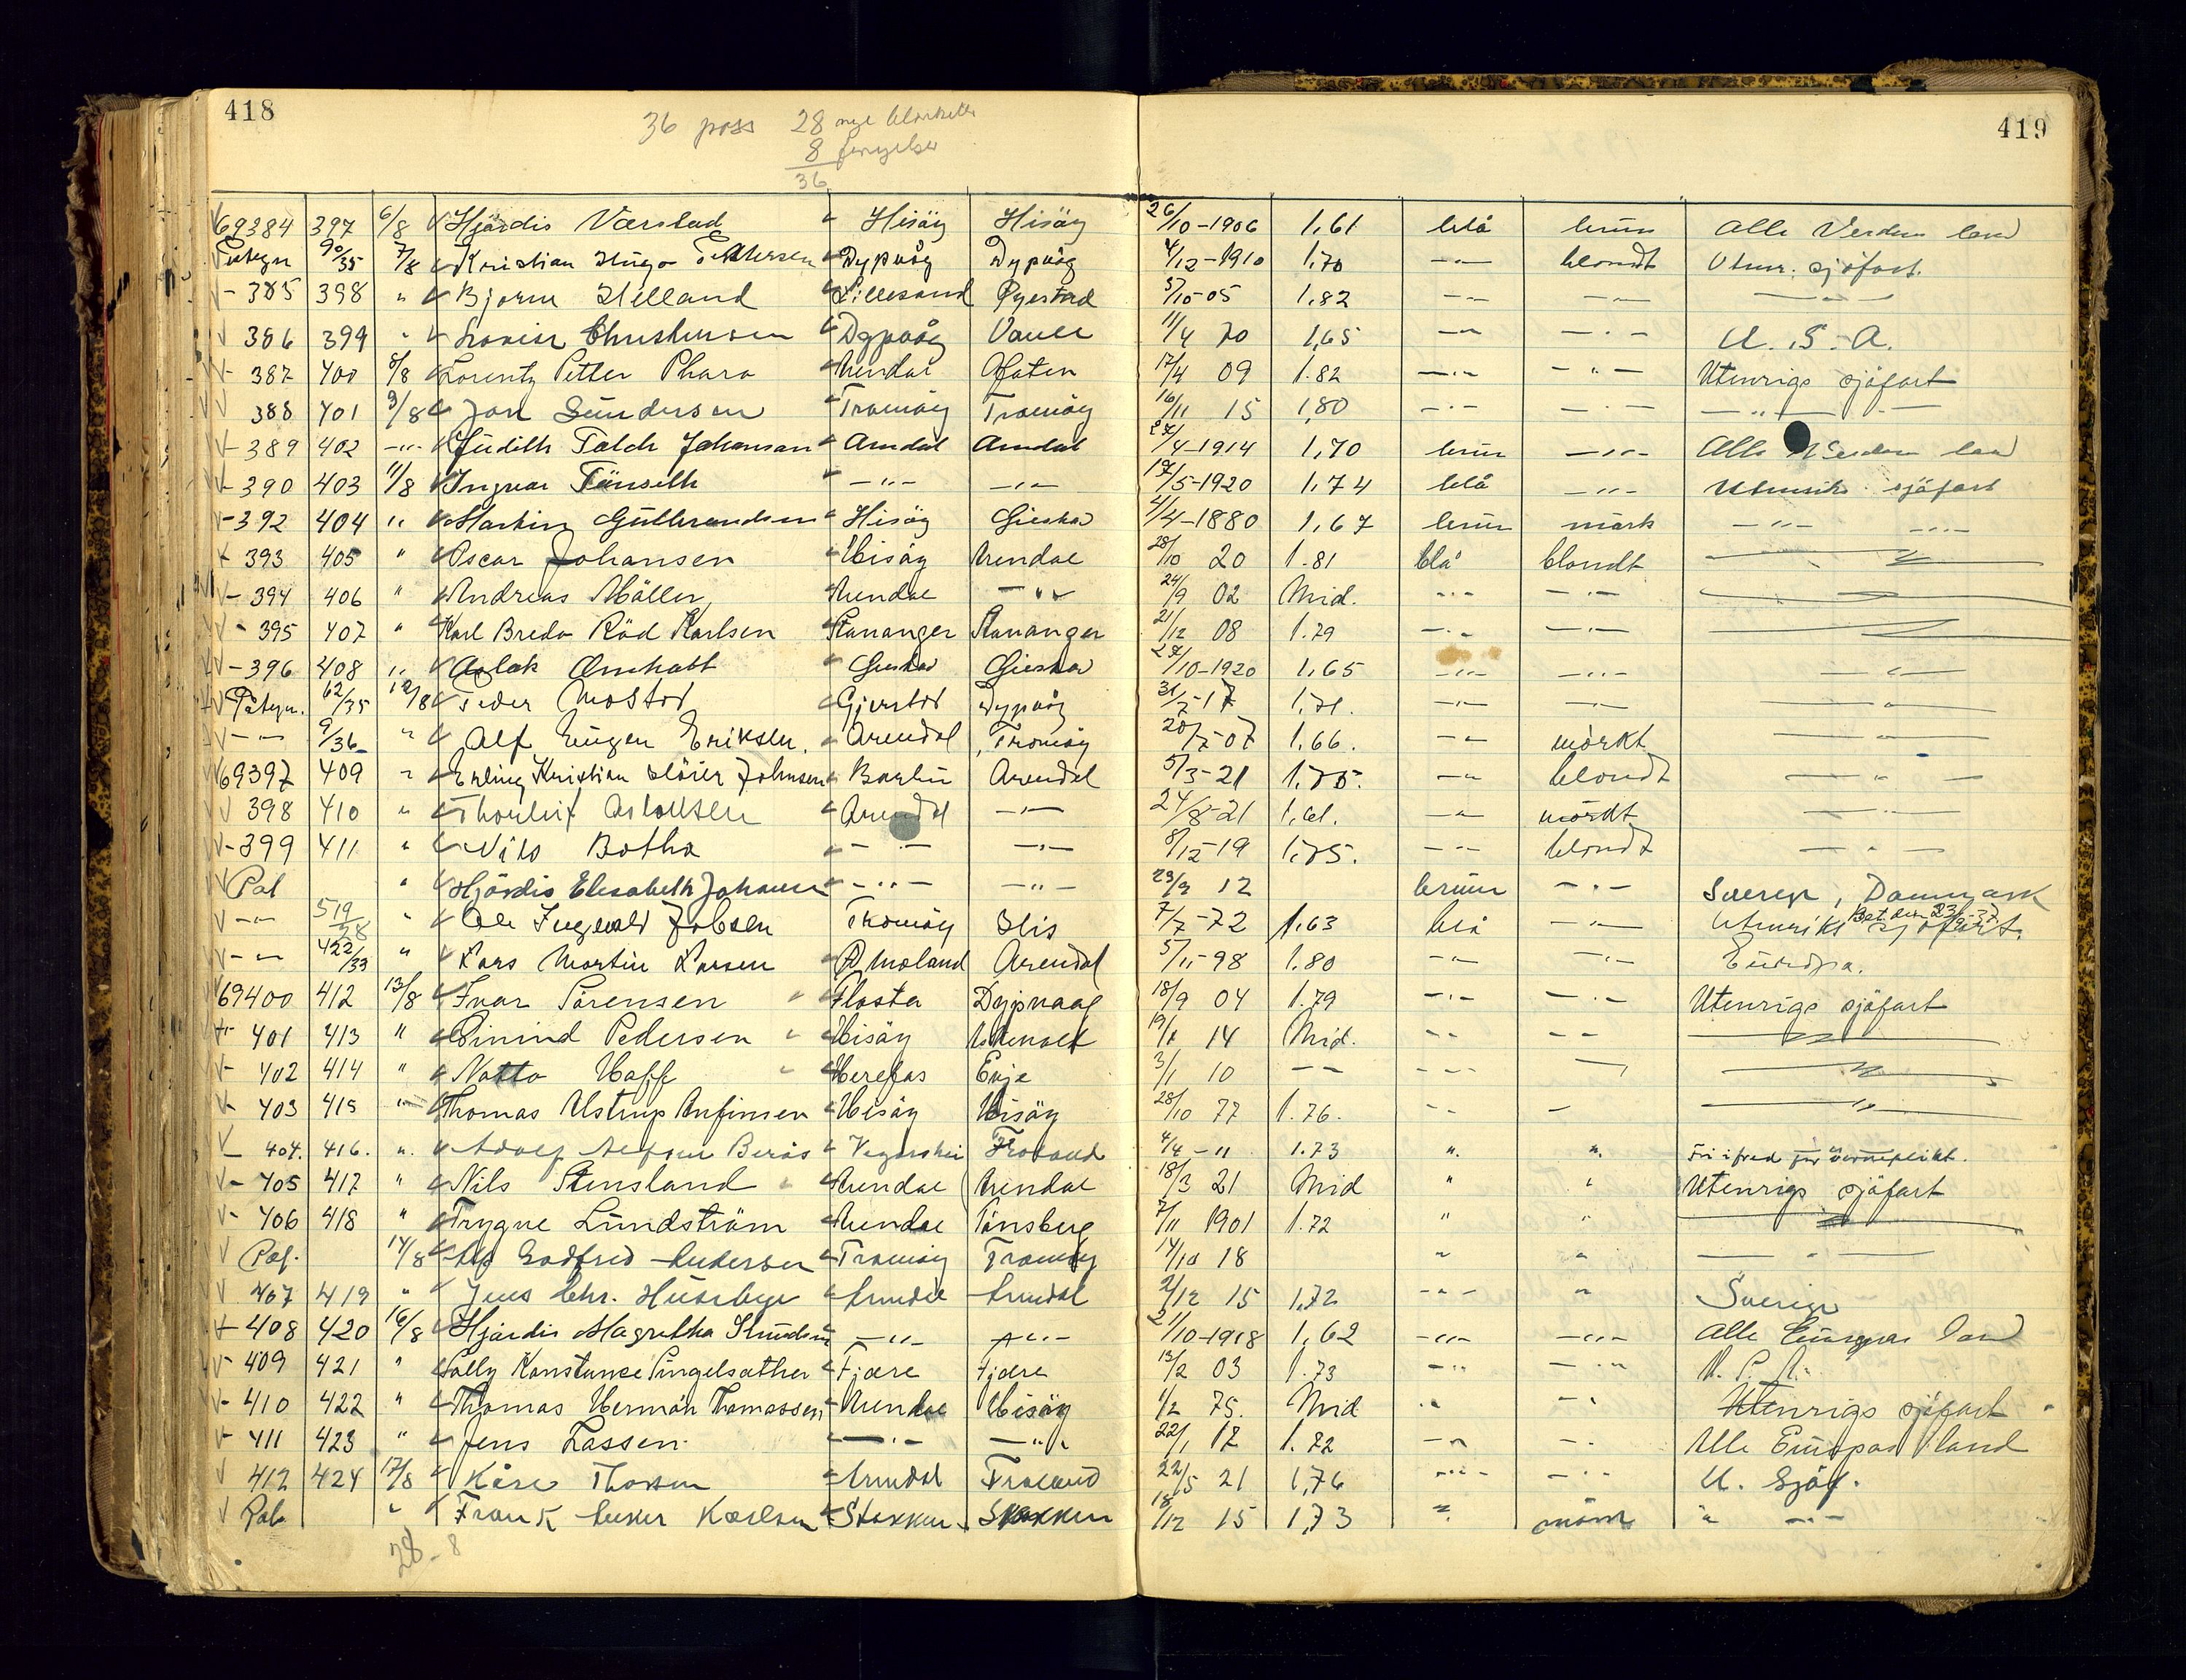 418
419
36 pass 28 nye
8
36
69384 397 6/8 Hjördis Værstad Hisöy Hisöy 26/10-1906 1,61 blå brun Alle Verdens land
90/35 7/8 Kristian Hugo Pettersen Dypvåg Dypvåg 4/12-1910 1,70 -"- blondt Utenr. sjöfart
- 385 398 " Bjarne Helland Lillesand 5/10-05 1,82 -"- -"- -"-
386 399 " Christensen Dypvåg 11/4 20 1,65 -"- -"- U.S.A.
- 387 400 8/8 Lorentz Petter Arendal 17/4 09 1.82 -"- -"- Utenrigs sjöfart
388 401 9/8 Jon Gundersen Tromöy Tromöy 16/11 15 1,80 -"- -"- -"-
- 389 402 -"- Judith Falch Johansen Arendal Arendal 27/4-1914 1,70 brun -"- Alle Verdens land
- 390 403 11/8 Ingvar -"- -"- 17/5-1920 1,74 blå -"- sjöfart
- 392 404 " Gulbrandsen Hisöy 4/4-1880 1,67 brun mörk -"- -"-
393 405 " Oscar Johansen Hisöy Arendal 28/10 20 1.81 blå blondt -"-
- 394 406 " Andreas Möller Arendal -"- 24/9 02 Mid. -"- -"- -"-
- 395 407 " Karl Bredo Röd Karlsen Stavanger Stavanger 21/12 08 1.79 -"- -"- -"-
- 396 408 " Aslak 27/10-1920 1,65 -"- -"- -"-
62/35 12/8 Peder Mostad Gjerstad Dypvåg 31/7-17 1,71. -"- -"- -"-
-"- 9/36 " Alf Eugen Eriksen Arendal Tromöy 20/7-07 1,66. -"- mörkt -"-
69397 409 " Erling Kristian Johnsen Arendal 5/3-21 1,75. -"- blondt -"-
398 410 " Thorleif Aslaksen Arendal -"- 24/8-21 1,61. -"- mörkt -"-
- 399 411 " Nils Botha -"- -"- 8/12-19 1,75. -"- blondt -"-
" Hjördis Elisabeth Johansen -"- -"- 23/3 12 brun -"- Sverige, Danmark
-"- 519/28 " Ole Ingvald Jobsen Tromöy His 7/7-72 1,63 blå -"- Utenriks sjöfart.
-"- 422/33 " Lars Martin Larsen Ø Moland Arendal 5/11-98 1.80 -"- -"- Europa.
69400 412 13/8 Ivar Sörensen Flosta Dypvaag 18/9 04 1.79 -"- -"- Utenrigs sjöfart
- 401 413 " Pedersen Hisöy 19/1 14 Mid. -"- -"- -"-
- 402 414 " Haff Herefos Evje 3/1 10 -"- -"- -"-
- 403 415 " Thomas Ulstrup Anfinsen Hisöy Hisöy 28/10 77 1.76. -"- - -"-
404. 416. " Adolf Froland 4/4-11 1.73 " " Fri i fred for værneplikt.
- 405 417 " Nils Stensland Arendal Arendal 18/3 21 Mid " " Utenrigs sjöfart
- 406 418 " Trygve Lundström Arendal Tönsberg 7/11 1901 1.72 " " -"-
14/8 Godfred Andersen Tromöy Tromöy 14/10 18 " " -"-
407 419 " Jens Chr. Huserbye Arendal Arendal 2/12 15 1,72 -"- " Sverige
- 408 420 16/8 Hjördis Magretha Knudsen -"- -"- 21/10-1918 1,62 -"- -"- Alle Europas land
- 409 421 " Solly Konstanse Fjære Fjære 13/2 03 1.73 -"- -"- U.S.A.
- 410 422 " Thomas Herman Thomassen Arendal Hisöy 1/2 75. Mid " -"- Utenrigs sjöfart
- 411 423 " Jens Lassen -"- -"- 22/1 12 1.72 -"- -"- Alle Europas land
412 424 17/8 Kåre Arendal Froland 22/5 21 1,76 -"- -"- U. Sjöf.
" Frank Karlsen Stokken Stokken 18/12 15 1,73 " mörk " -"-
28 - 8